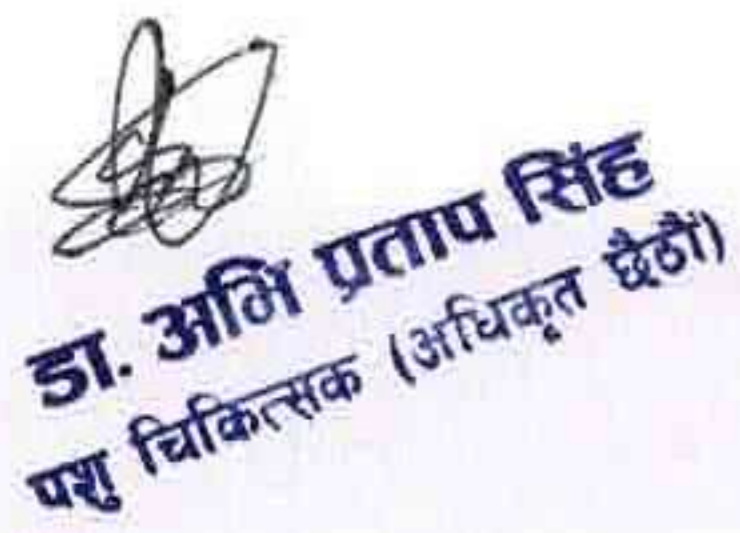 डा. अभि प्रताप सिंह
पशु चिकित्सक (अधिकृत छैठौं)